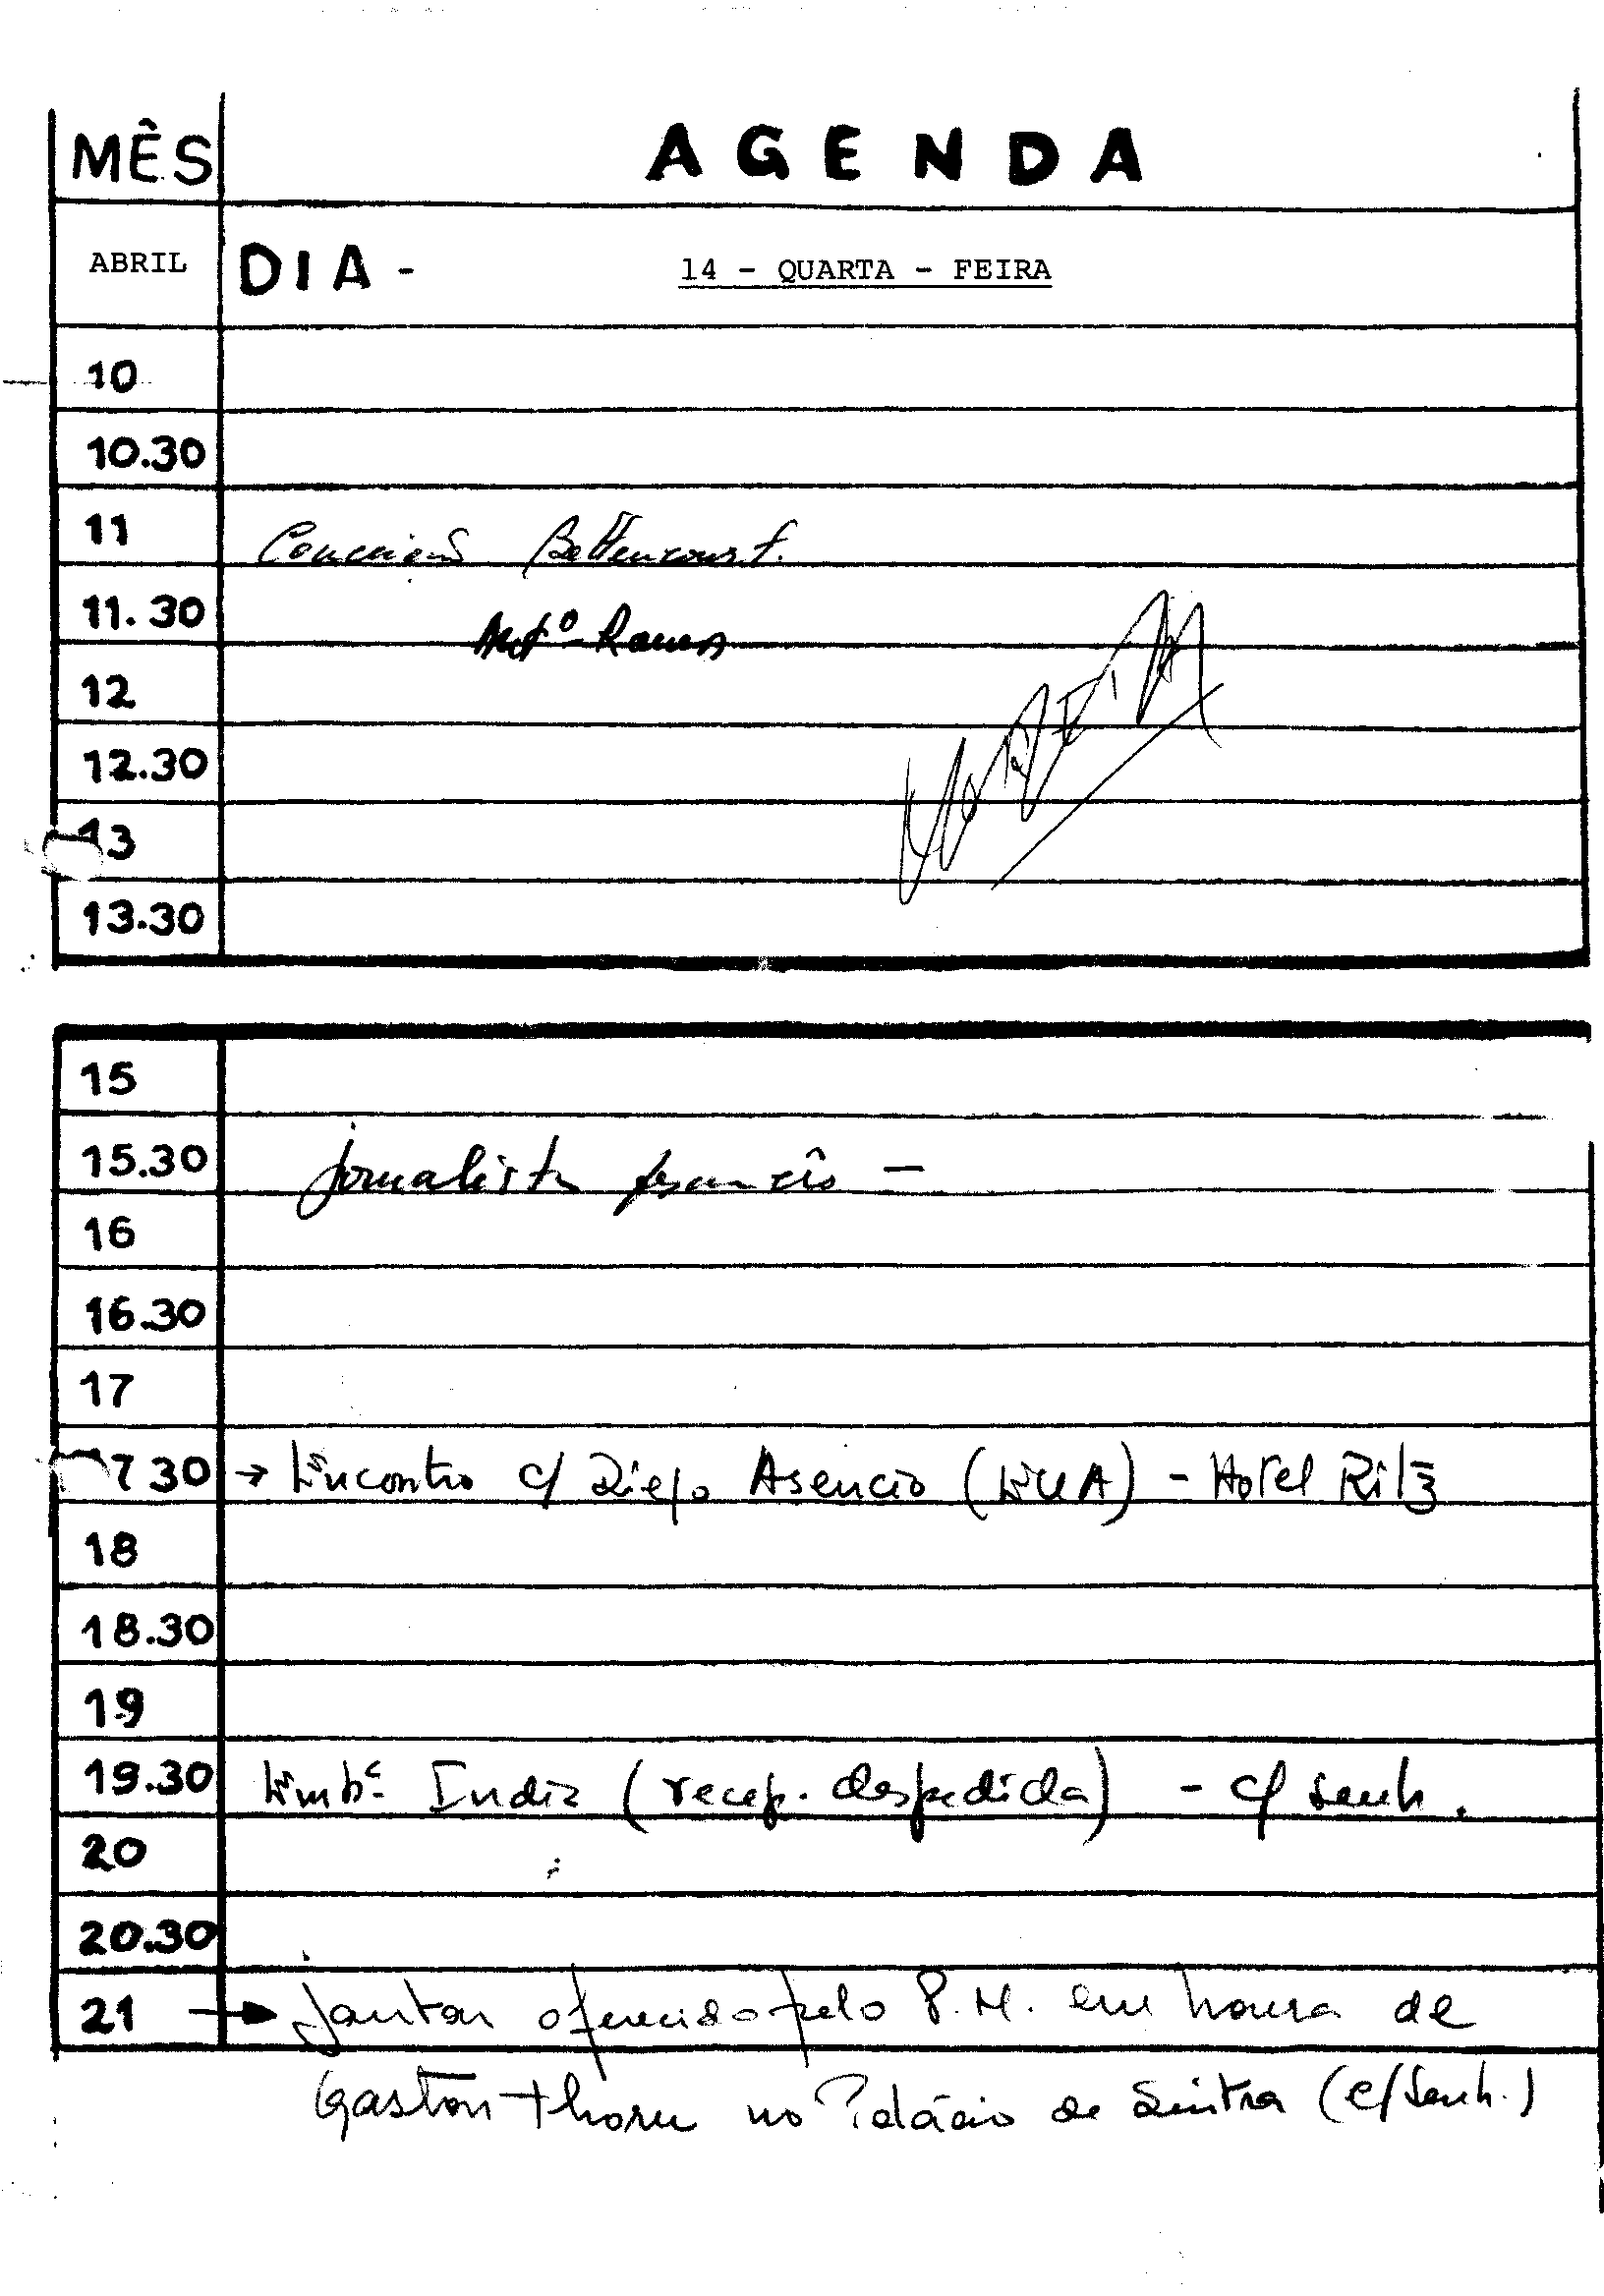 MÊS AGENDA
ABRIL DIA - 14 - QUARTA - FEIRA
10
10.30
11 Conceição Bettencourt.
11.30 Antº Ramos
12
12.30
13
13.30
15
15.30 Jornalista francês -
16
16.30
17
7 30 → Encontro c/ Diego Asencio (EUA) - Hotel Ritz
18
18.30
19
19.30 Embª India (recep. despedida) - c/ senh.
20
20.30
21 → Jantar oferecido pelo P.M. em honra de
Gaston Thorn no Palácio de Sintra (c/senh.)